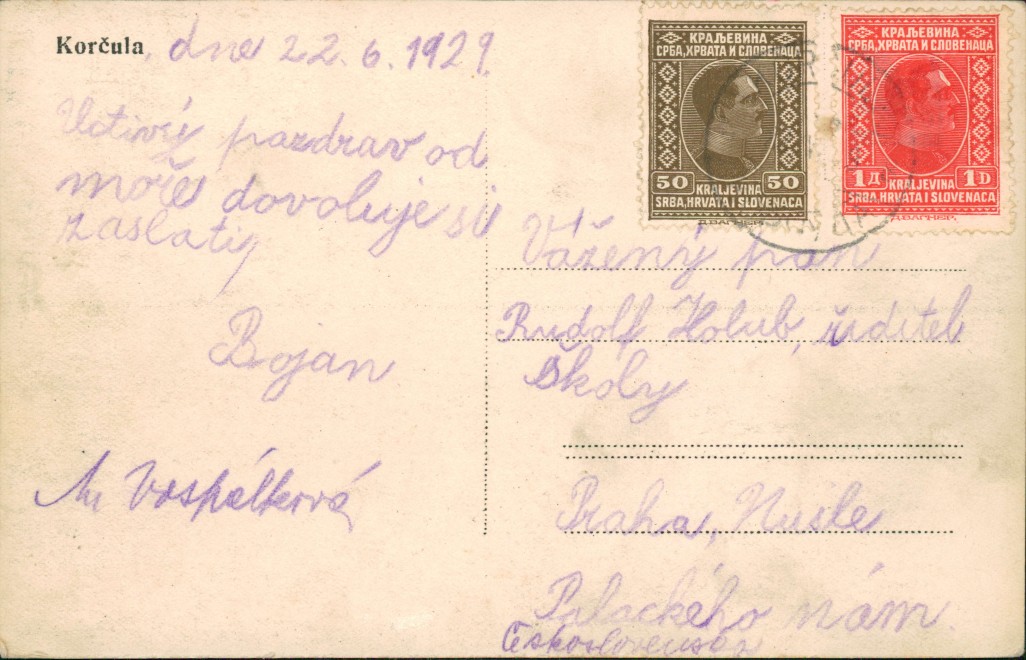 Korčula, dne 22.6.1929.
Uctivý pozdrav od
moře dovoluje si
zaslati
Bojan
Vospělková
КРАЉЕВИНА
СРБА, ХРВАТА И СЛОВЕНАЦА
50 50
KRALJEVINA
SRBA, HRVATA I SLOVENACA
Д.ВАГНЕР.
КРАЉЕВИНА
СРБА, ХРВАТА И СЛОВЕНАЦА
1Д 1D
KRALJEVINA
SRBA, HRVATA I SLOVENACA
Д.ВАГНЕР.
Vážený pán
Rudolf Holub, řiditel
školy
Praha, Nusle
Palackého nám.
Československo